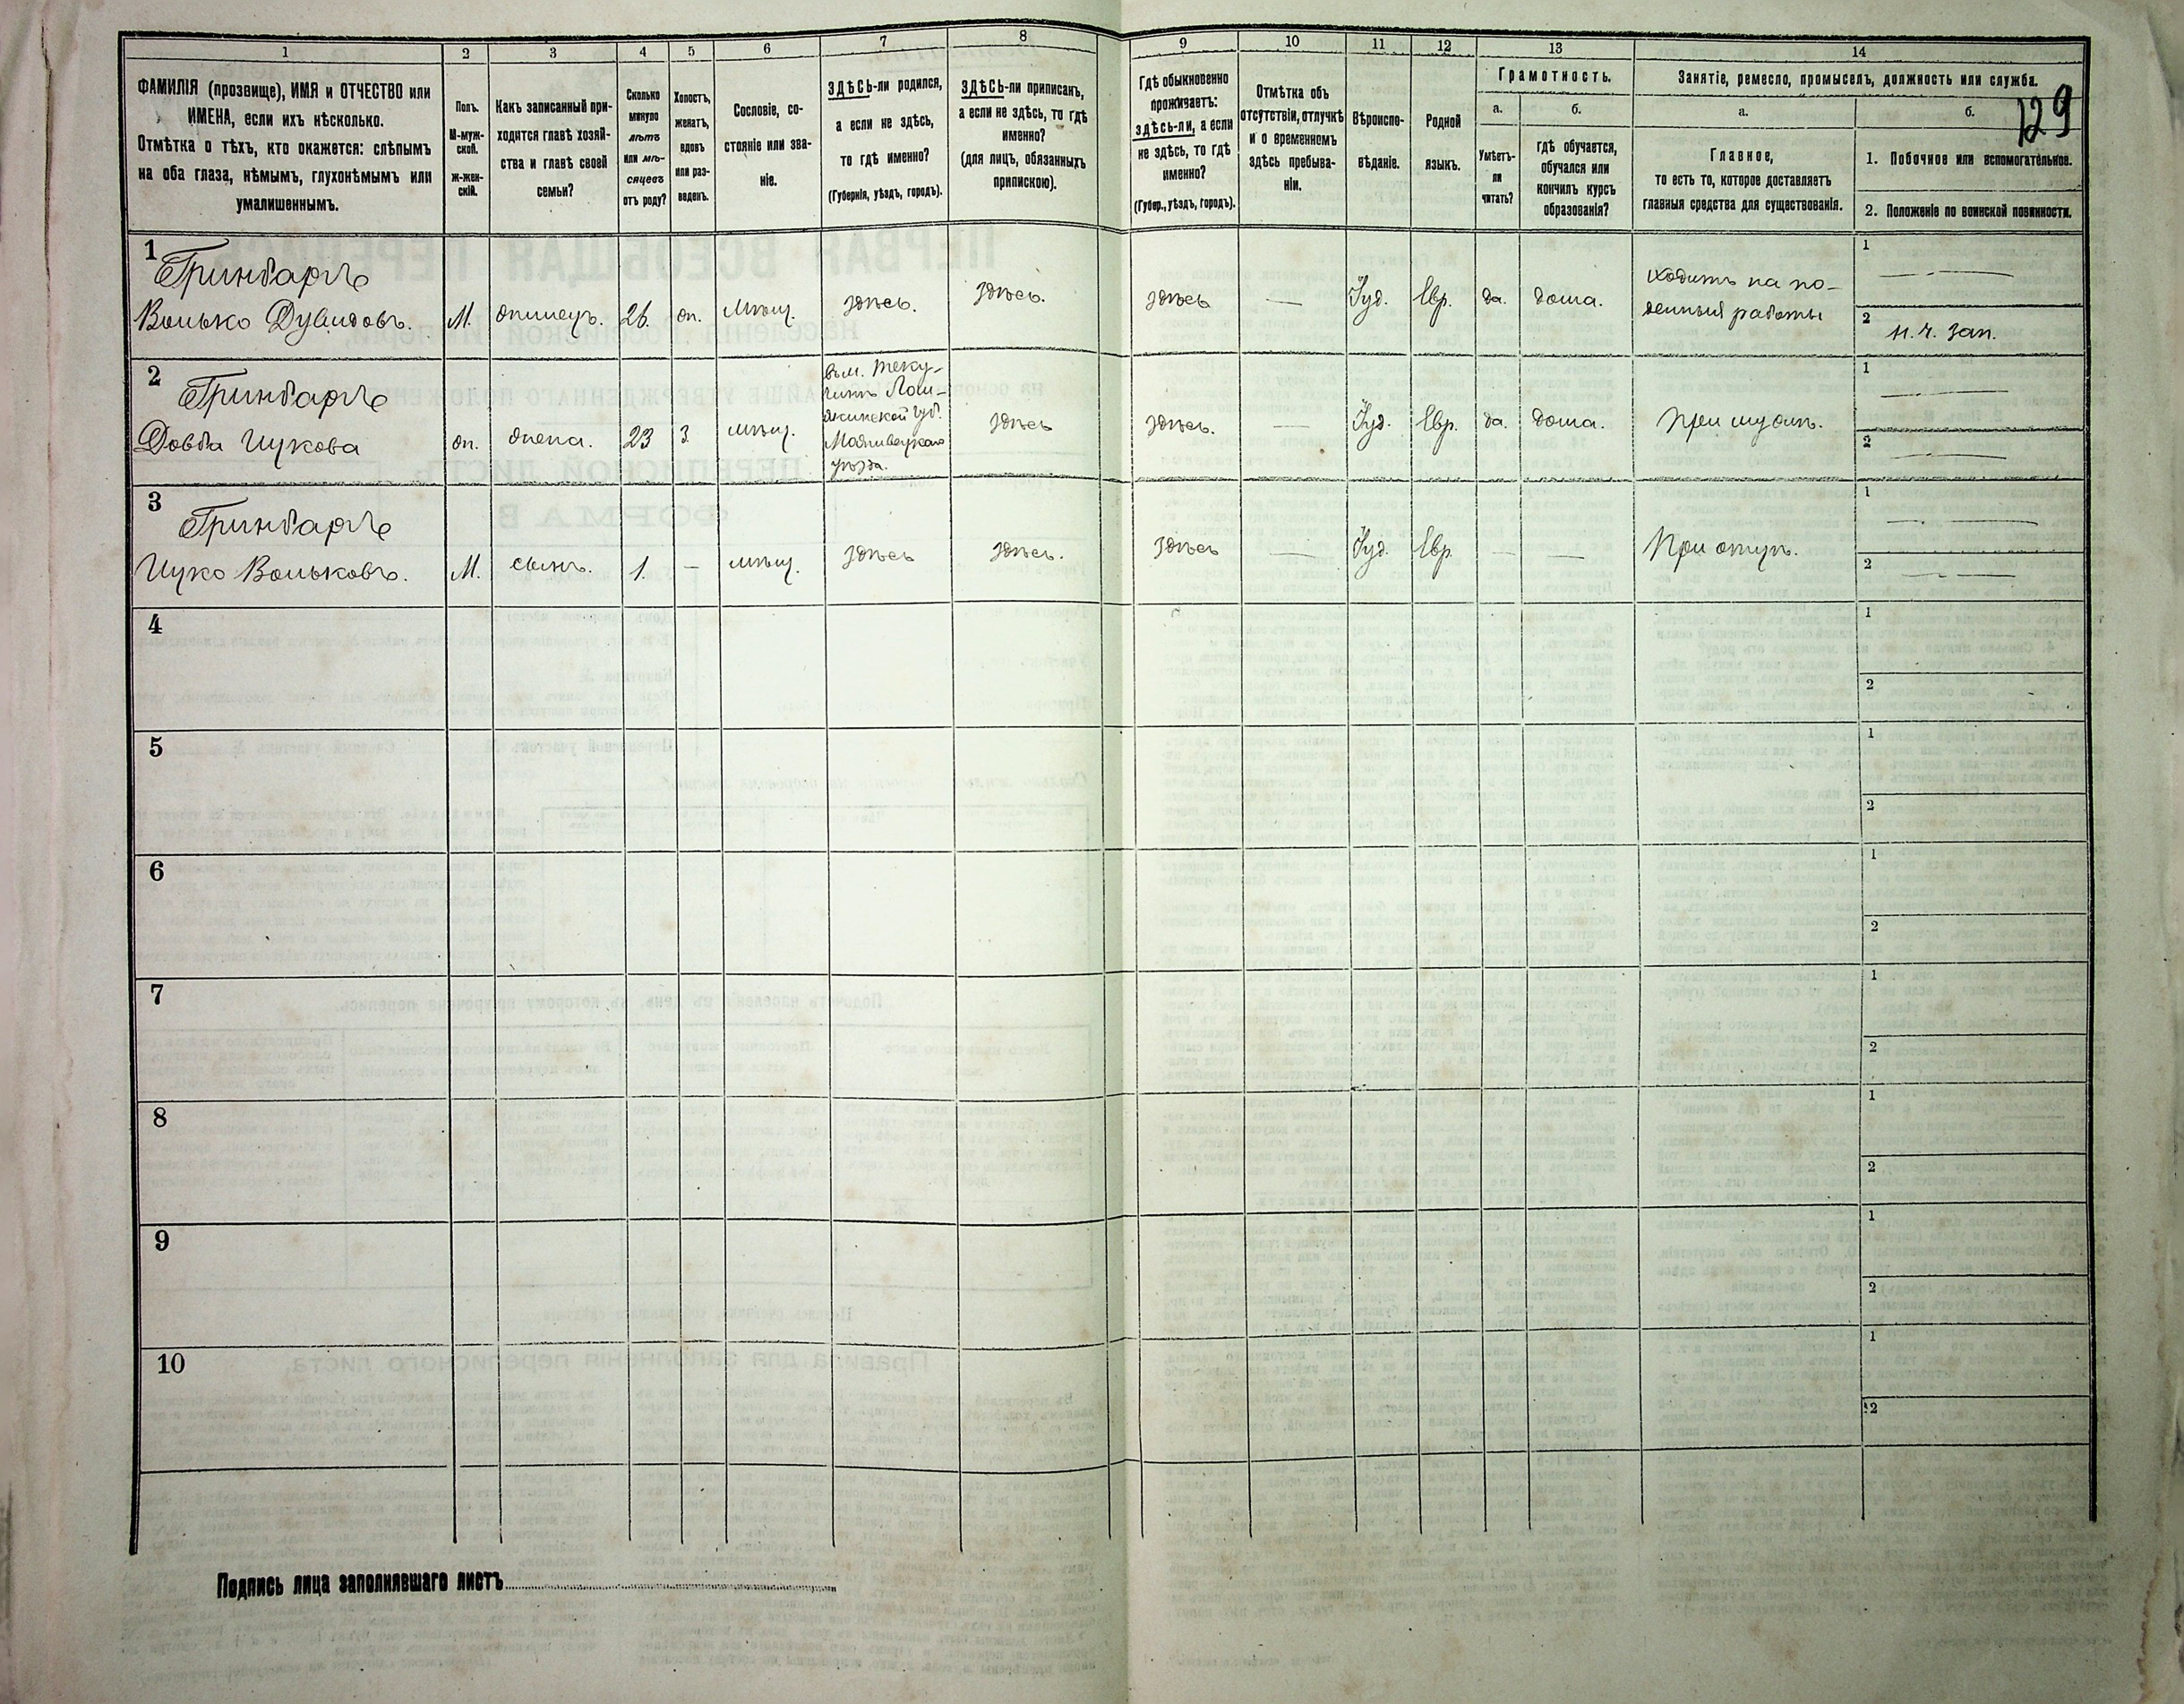 1 2 3 4 5 6 7 8 9 10 11 12 13 14
ФАМИЛІЯ (прозвище), ИМЯ и ОТЧЕСТВО или
ИМЕНА, если ихъ нѣсколько.
Отмѣтка о тѣхъ, кто окажется: слѣпымъ
на оба глаза, нѣмымъ, глухонѣмымъ или
умалишеннымъ.
Полъ.
М-муж-
ской.
Ж-жен-
скій.
Какъ записанный при-
ходится главѣ хозяй-
ства и главѣ своей
семьи?
Сколько
минуло
лѣтъ
или мѣ-
сяцевъ
отъ роду?
Холостъ,
женатъ,
вдовъ
или раз-
веденъ.
Сословіе, со-
стояніе или зва-
ніе.
ЗДѢСЬ-ли родился,
а если не здѣсь,
то гдѣ именно?
(Губернія, уѣздъ, городъ).
ЗДѢСЬ-ли приписанъ,
а если не здѣсь, то гдѣ
именно?
(для лицъ, обязанныхъ
припискою).
Гдѣ обыкновенно
проживаетъ:
здѣсь-ли, а если
не здѣсь, то гдѣ
именно?
(Губер., уѣздъ, городъ).
Отмѣтка объ
отсутствіи, отлучкѣ
и о временномъ
здѣсь пребыва-
ніи.
Вѣроиспо-
вѣданіе.
Родной
языкъ.
Грамотность.
а.
Умѣетъ-
ли
читать?
б.
гдѣ обучается,
обучался или
кончилъ курсъ
образованія?
Занятіе, ремесло, промыселъ, должность или служба.
129
а.
Главное,
то есть то, которое доставляетъ
главныя средства для существованія.
б.
1. Побочное или вспомогательное.
2. Положеніе по воинской повинности.
1
Гринбаргъ
Волько Дувидовъ.
М.
26.
Мѣщ.
здѣсь.
здѣсь.
здѣсь
—
Іуд.
Евр.
да.
дома.
ходитъ на по-
денныя работы
1
—
2
н. ч. зап.
2
Гринбаргъ
Довба Ицкова
23
мѣщ.
уѣзда.
здѣсь
здѣсь.
—
Іуд.
Евр.
да.
дома.
при мужѣ.
1
—
2
—
3
Гринбаргъ
Ицко Вольковъ.
М.
сынъ.
1.
—
мѣщ.
здѣсь
здѣсь.
здѣсь
—
Іуд.
Евр.
—
—
При отцѣ.
1
—
2
—
4
1
2
5
1
2
6
1
2
7
1
2
8
1
2
9
1
2
10
1
2
Подпись лица заполнявшаго листъ